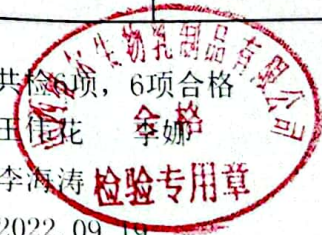 共检6项，6项合格
王伟花 李娜
李海涛
2022.09.19
生物乳制品有限公司
合格
检验专用章